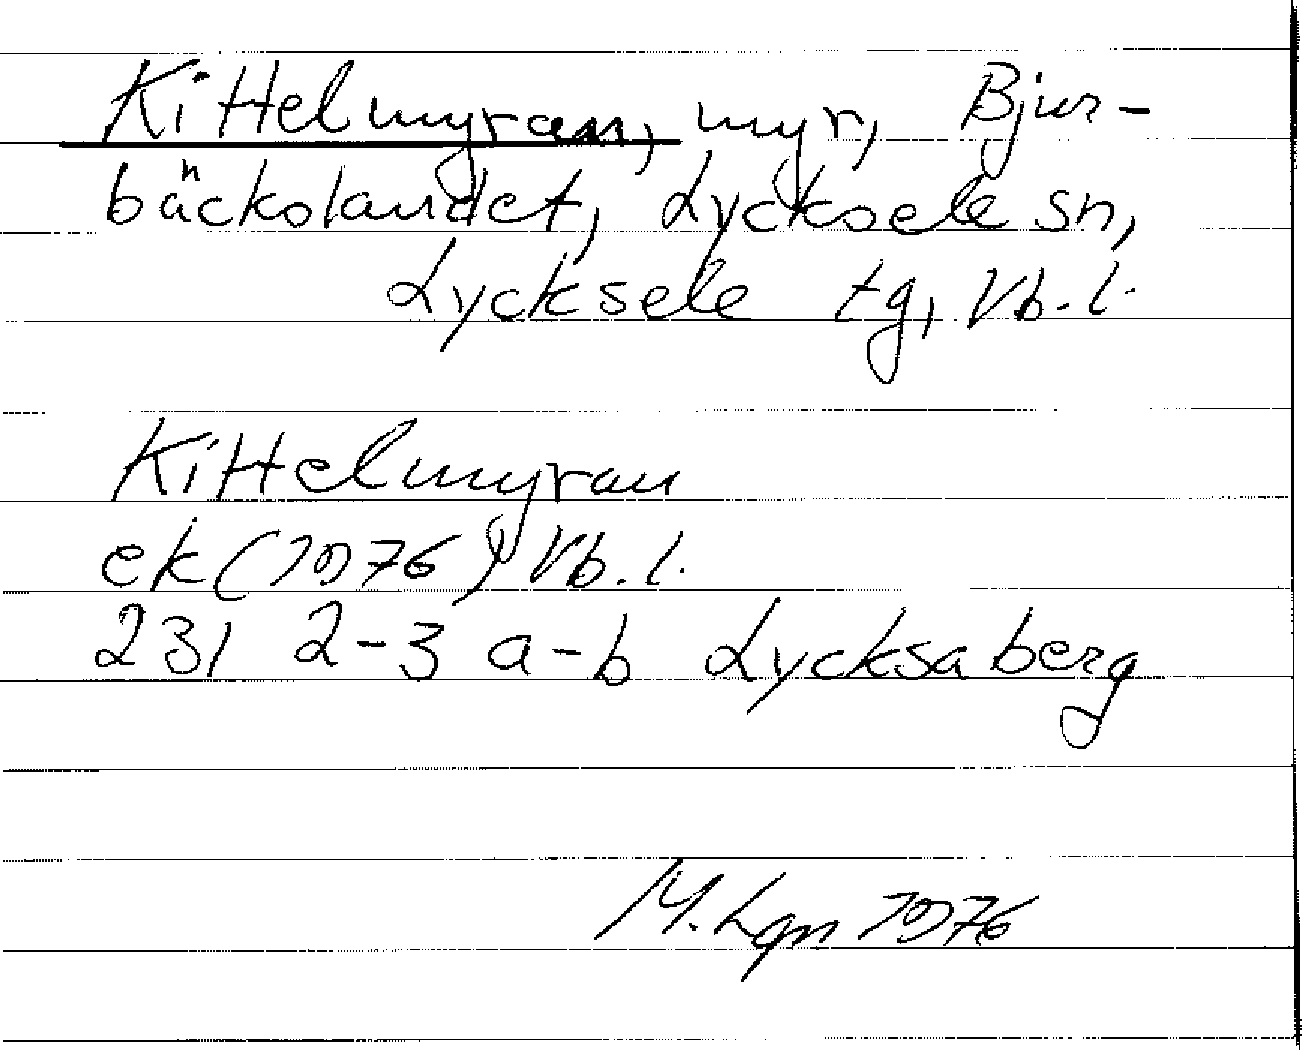 Kittelmyran, myr, Bjur-
bäckslandet, Lycksele sn,
Lycksele tg, Vb. l.
Kittelmyran
ek (1976) Vb. l.
231 2-3 a-b Lycksaberg
M. Lgn 1976